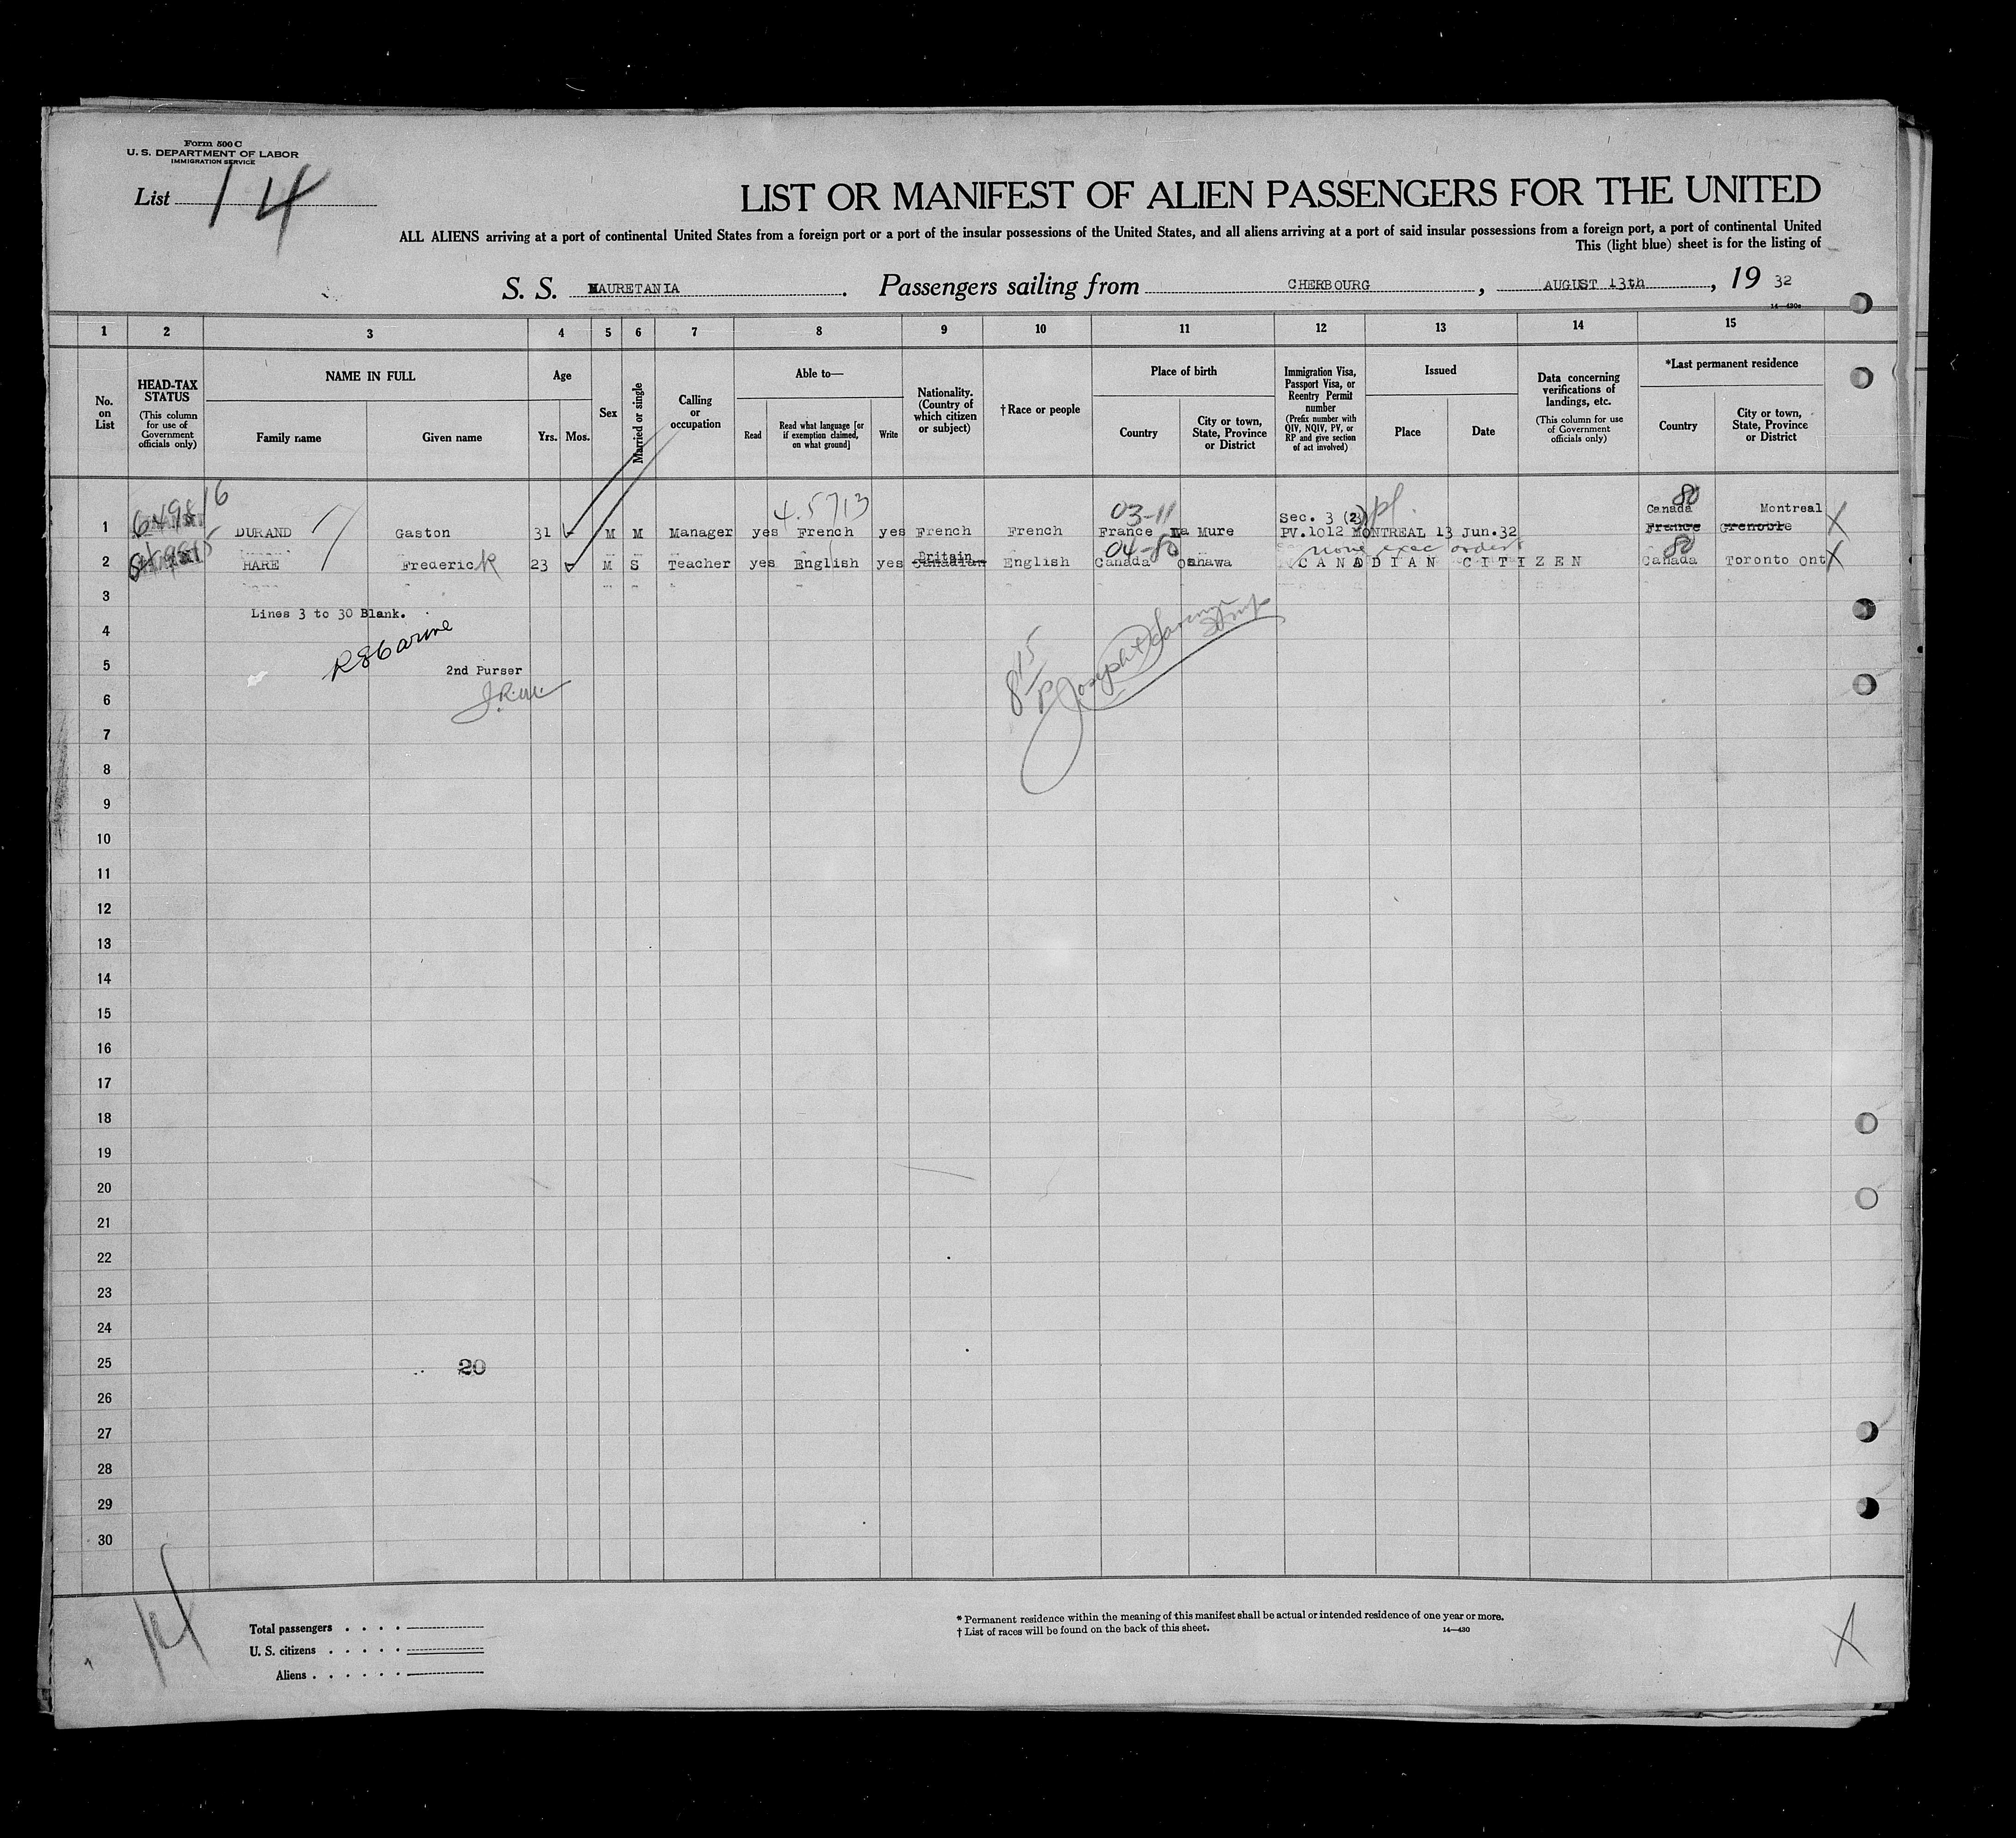 Form 500 C
U. S. DEPARTMENT OF LABOR
IMMIGRATION SERVICE
List 14
LIST OR MANIFEST OF ALIEN PASSENGERS FOR THE UNITED
ALL ALIENS arriving at a port of continental United States from a foreign port or a port of the insular possessions of the United States, and all aliens arriving at a port of said insular possessions from a foreign port, a port of continental United
This (light blue) sheet is for the listing of
S. S. MAURETANIA. Passengers sailing from CHERBOURG, AUGUST 13th, 19 32
14—430a
1 2 3 4 5 6 7 8 9 10 11 12 13 14 15
No. on List
HEAD-TAX STATUS (This column for use of Government officials only)
NAME IN FULL
Family name Given name
Age
Yrs. Mos.
Sex
Married or single
Calling or occupation
Able to—
Read
Read what language [or if exemption claimed, on what ground]
Write
Nationality. (Country of which citizen or subject)
†Race or people
Place of birth
Country
City or town, State, Province or District
Immigration Visa, Passport Visa, or Reentry Permit number (Prefix number with QIV, NQIV, PV, or RP and give section of act involved)
Issued
Place Date
Data concerning verifications of landings, etc. (This column for use of Government officials only)
*Last permanent residence
Country
City or town, State, Province or District
16 4.5713 03-11 Sec. 3 (2) pl. 80 Canada Montreal
1 DURAND Gaston 31 M M Manager yes French yes French French France La Mure PV.1012 MONTREAL 13 Jun.32 France Grenoble X
15 Britain 04-80 none exec orders 80
2 HARE Frederick 23 M S Teacher yes English yes Canadian English Canada Oshawa CANADIAN CITIZEN Canada Toronto Ont X
3
Lines 3 to 30 Blank.
4
5 2nd Purser
J.R.M.
6
7
8
9
10
11
12
13
14
15
16
17
18
19
20
21
22
23
24
25 20
26
27
28
29
30
14
Total passengers
U. S. citizens
Aliens
* Permanent residence within the meaning of this manifest shall be actual or intended residence of one year or more.
† List of races will be found on the back of this sheet.
14—430
X